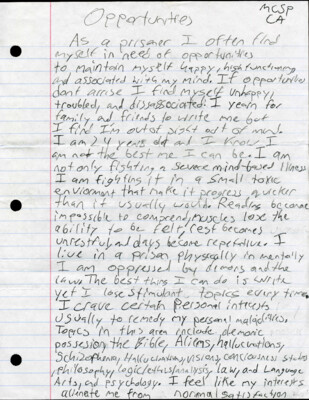 Opportunities
MCSP
CA
As a prisoner I often find
myself in need of opportunities
to maintain myself happy, high functioning
and associated with my mind. If opportunities
dont arrise I find myself unhappy,
troubled, and dissassociated. I yearn for
family and friends to write me but
I find Im out of sight out of mind.
I am 24 years old and I know I
am not the best me I can be. I am
not only fighting a severe mind based illness
I am fighting it in a small toxic
enviorment that make it progress quicker
than it usually would. Reading become
impossible to comprend, muscles lose the
ability to be felt, rest becomes
unrestful and days become repetative. I
live in a prison physically in mentally
I am oppressed by demons and the
law. The best thing I can do is write
yet I lose stimulant topics every time.
I crave certain personal interests
usually to remedy my personal maladies.
Topics in this area include demonic
possesion, the Bible, Aliens, hallucinations,
Schizophrenia, Hallucinations, visions, conciousness states,
philosophy, logic/ethics/analysis, law, and Language
Arts, and psychology. I feel like my interests
alienate me from normal satisfaction.